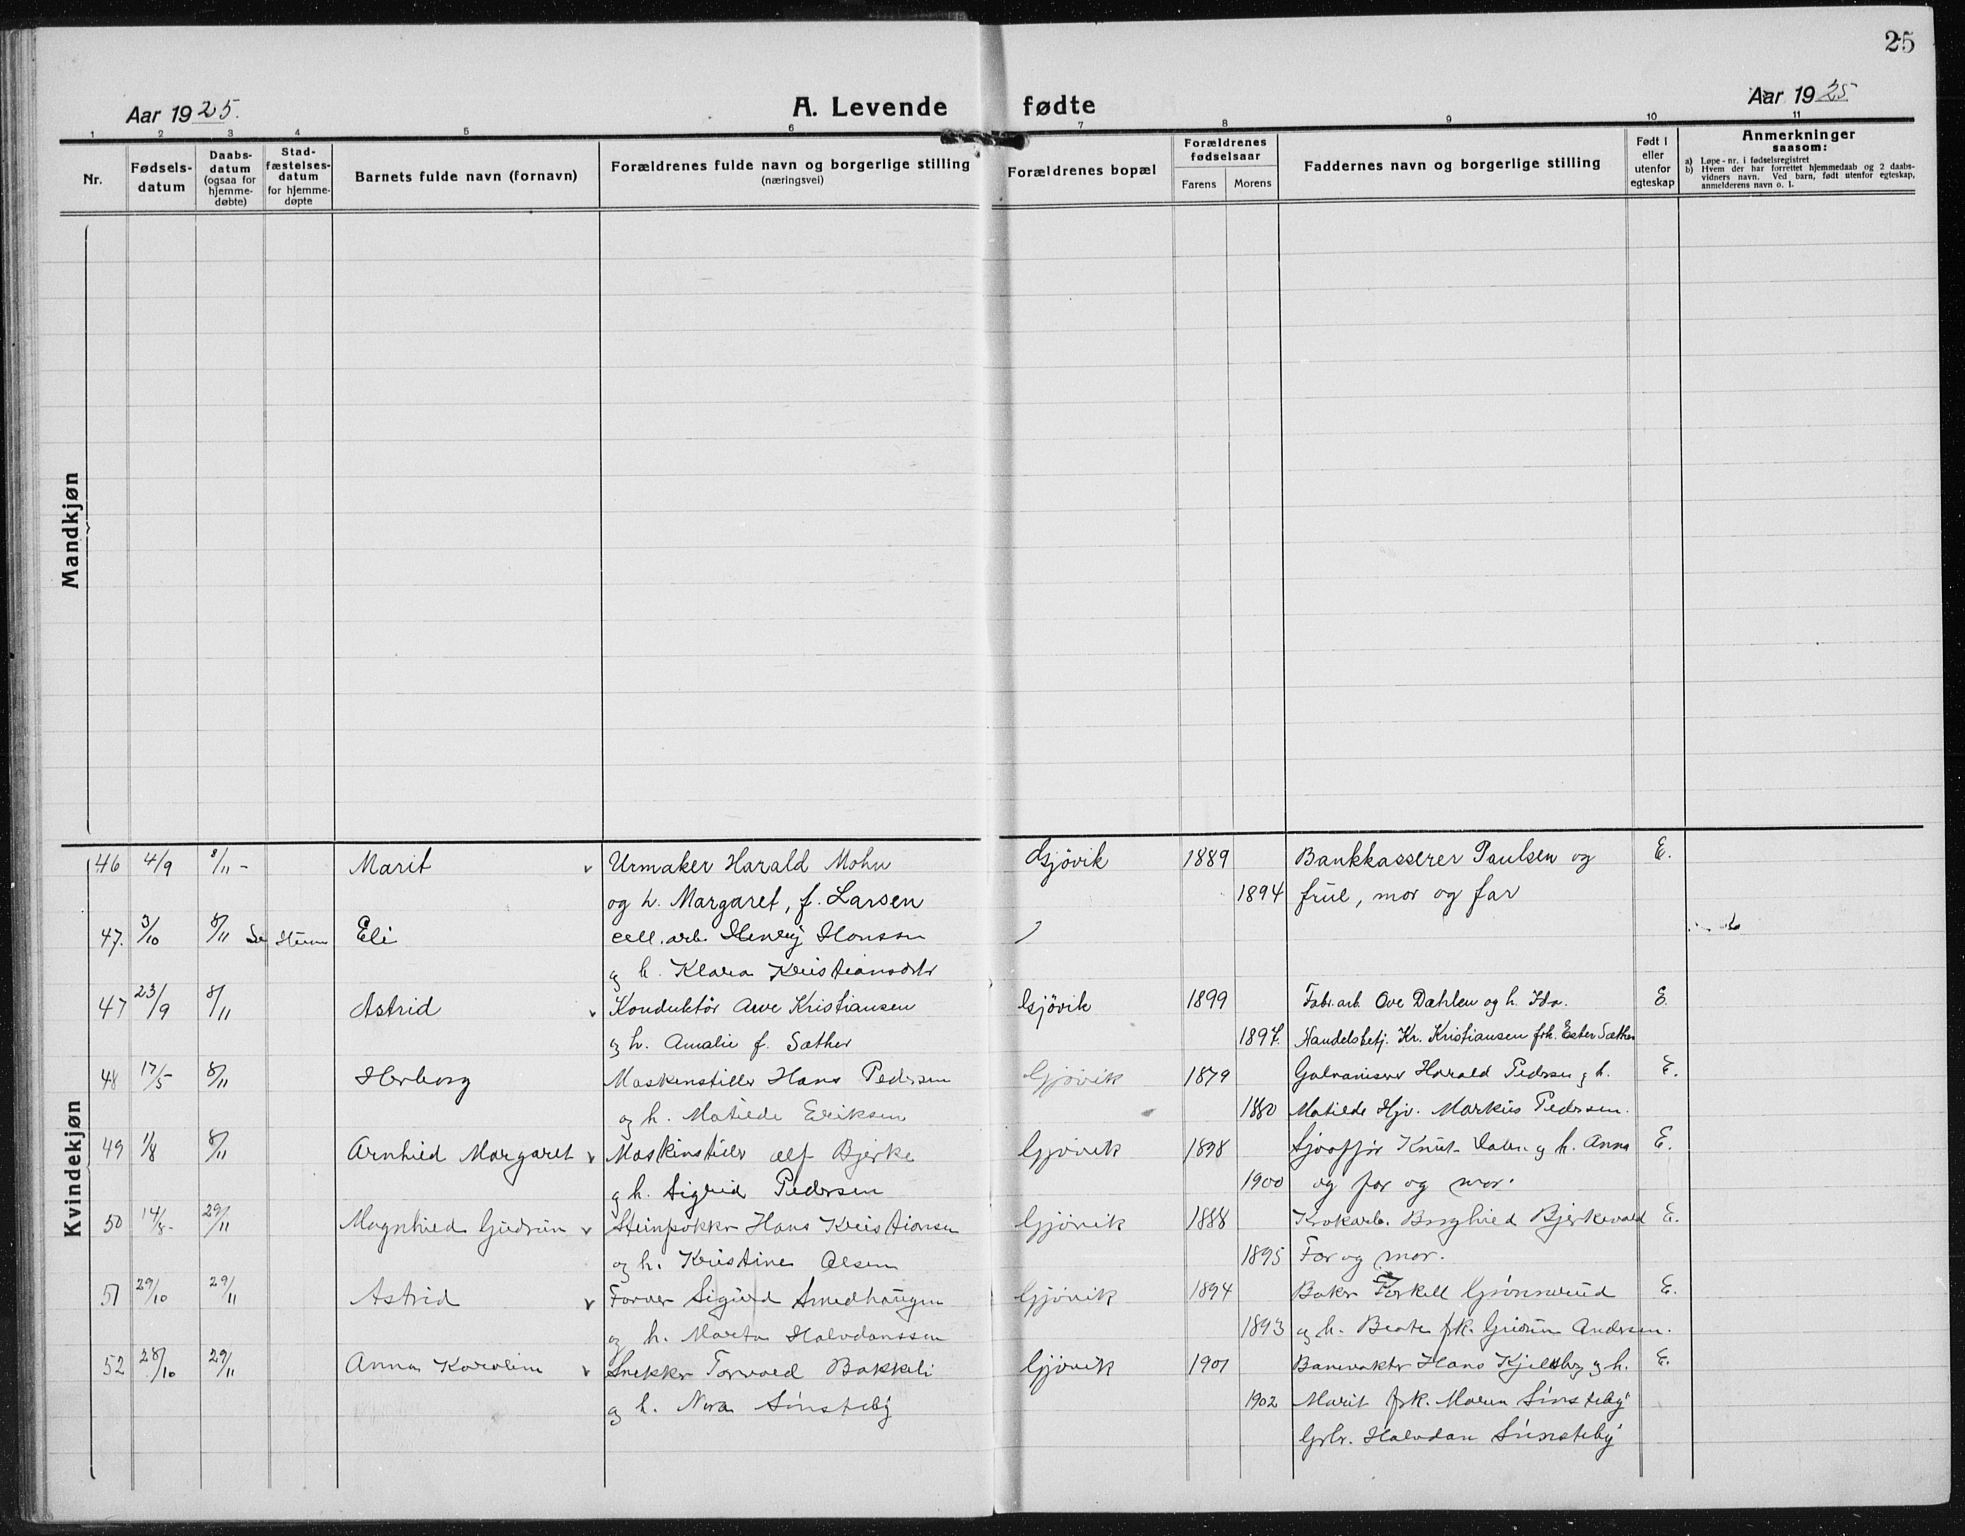 25
Aar 1925.
A. Levende fødte
Aar 1925
1 2 3 4 5 6 7 8 9 10 11
Nr.
Fødsels-
datum
Daabs-
datum
(ogsaa for
hjemme-
døbte)
Stad-
fæstelses-
datum
for hjemme-
døpte
Barnets fulde navn (fornavn)
Forældrenes fulde navn og borgerlige stilling
(næringsvei)
Forældrenes bopæl
Forældrenes
fødselsaar
Farens Morens
Faddernes navn og borgerlige stilling
Født i
eller
utenfor
egteskap
Anmerkninger
saasom:
a) Løpe-nr. i fødselsregistret
b) Hvem der har forrettet hjemmedaab og 2 daabs-
vidners navn. Ved barn, født utenfor egteskap,
anmelderens navn o. l.
Mandkjøn
Kvindekjøn
46 4/9 8/11 - Marit v Urmaker Harald Mohn Gjøvik 1889 Bankkasserer Paulsen og E.
og h. Margaret, f. Larsen 1894 frue, mor og far
47. 3/10 8/11 Eli cell. arb. Henry Hanssen
og h. Klara Kristiansdtr
47 23/9 8/11 Astrid v Konduktør Arve Kristiansen Gjøvik 1899 Fabr. arb. Ove Dæhlen og h. Ida. E.
og h. Amalie f. Sæther 1897. Handelsbetj. Kr. Kristiansen frk. Ester Sæther
48 17/5 8/11 Herborg Maskinstiller Hans Pedersen Gjøvik 1879 Galvaniserer Harald Pedersen og h. E.
og h. Matilde Eriksen 1880 Matilde Hjv. Markus Pedersen.
49 1/8 8/11 Arnhild Margaret v Maskinstiller Alf Bjerke Gjøvik 1898 Sjoffør Knut Dalen og h. Anna E.
og h. Sigrid Pedersen 1900 og far og mor.
50 14/8 29/11 Magnhild Gudrun v Steinpukker Hans Kristiansen Gjøvik 1888 Krokarb. Borghild Bjerkevold E.
og h. Kristine Olsen 1895 Far og mor.
51 29/10 29/11 Astrid v Farver Sigurd Smedhaugen Gjøvik 1894 Baker Torkell Grønnerud E.
og h. Marta Halvdanssen 1893 og h. Beate frk. Gudrun Andersen.
52 28/10 29/11 Anna Karoline v Snekker Torvald Bakkeli Gjøvik 1901 Banevakter Hans Kjellberg og h. E.
og h. Nora Sønsteby 1902 Marit frk. Maren Sønsteby
Grbr. Halvdan Sønsteby